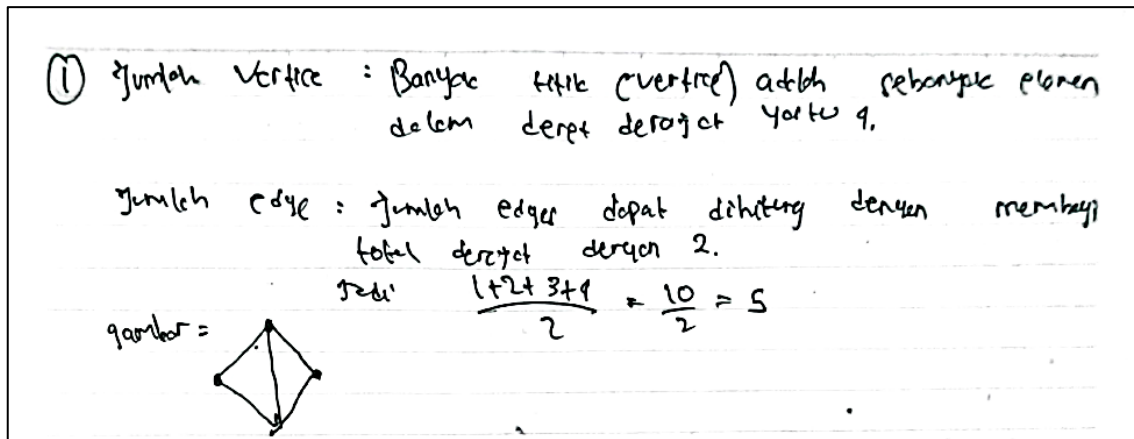 ① Jumlah Vertice : Banyak titik (vertice) adalah sebanyak elemen
dalam deret derajat yaitu 4.
Jumlah edge : Jumlah edges dapat dihitung dengan membagi
total derajat dengan 2.
Jadi (1+2+3+4)/2 = 10/2 = 5
gambar =